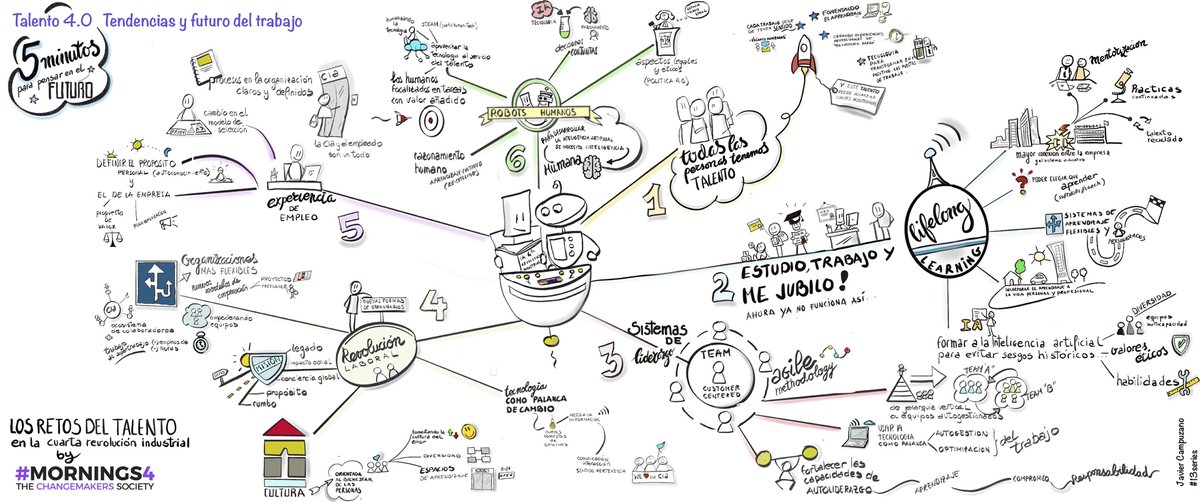 Talento 4.0 Tendencias y futuro del trabajo
5 minutos
para pensar en el
FUTURO
LOS RETOS DEL TALENTO
en la cuarta revolución industrial
by
#MORNINGS4
THE CHANGEMAKERS SOCIETY
1
todas las
personas tenemos
TALENTO
CADA TRABAJO DEBE
DE TENER SENTIDO
FOMENTANDO
EL APRENDIZAJE
CREANDO EXPERIENCIAS
TECNOLOGÍA
PARA
Y ESTE TALENTO
2
ESTUDIO, TRABAJO Y
ME JUBILO!
AHORA YA NO FUNCIONA ASÍ...
lifelong
LEARNING
mentorización
Prácticas
continuadas
talento
reciclado
UNIVERSIDAD
mayor conexión entre la empresa
y el sistema educativo
PODER ELEGIR QUE
aprender
SISTEMAS DE
APRENDIZAJE
FLEXIBLES Y
PERDURABLES
INCORPORAR EL APRENDIZAJE A
LA VIDA PERSONAL Y PROFESIONAL
IA
formar a la Inteligencia artificial
para evitar sesgos históricos
DIVERSIDAD
equipos
multicapacidad
valores
éticos
habilidades
3
Sistemas
DE
liderazgo
TEAM
CUSTOMER
CENTERED
agile
methodology
de jerarquía vertical
a equipos autogestionados
TEAM "A"
TEAM "B"
USAR LA
TECNOLOGÍA
COMO PALANCA
AUTOGESTIÓN
OPTIMIZACIÓN
del trabajo
fortalecer las
capacidades de
AUTOLIDERAZGO
APRENDIZAJE
COMPROMISO
Responsabilidad
4
NUEVAS FORMAS
DE
Revolución
LABORAL
Organizaciones
MÁS FLEXIBLES
nuevos
modelos de
PROYECTOS
ecosistema
de colaboradores
empoderando
equipos
MISIÓN
legado
impacto social
conciencia global
propósito
rumbo
CULTURA
fomentando la
cultura del
error
DIVERSIDAD
ESPACIOS
DE APRENDIZAJE
ORIENTADA
AL BIENESTAR
DE LAS
PERSONAS
tecnología
COMO PALANCA
DE CAMBIO
COMUNICACIÓN
INTERACCIÓN
SENTIDO PERTENENCIA
WE ♥ our CIA
5
experiencia
DE
EMPLEO
procesos en la organización
claros y definidos
CIA
la CIA y el empleado
son un todo
cambio en el
modelo de
selección
DEFINIR EL PROPÓSITO
PERSONAL (autoconocimiento)
Y
EL DE LA EMPRESA
propuesta
de
VALOR
6
ROBOTS HUMANOS
humanizando la
tecnología
aprovechar la
tecnología al servicio
del talento
los humanos
focalizados en tareas
con valor añadido
razonamiento
humano
APRENDIZAJE CONTINUO
IA
TECNOLOGÍA
decisiones
CONJUNTAS
aspectos legales
y éticos
(POLÍTICA 4.0)
PARA DESARROLLAR
LA INTELIGENCIA ARTIFICIAL
SE NECESITA INTELIGENCIA
Humana
Javier Campuzano
#ISseries